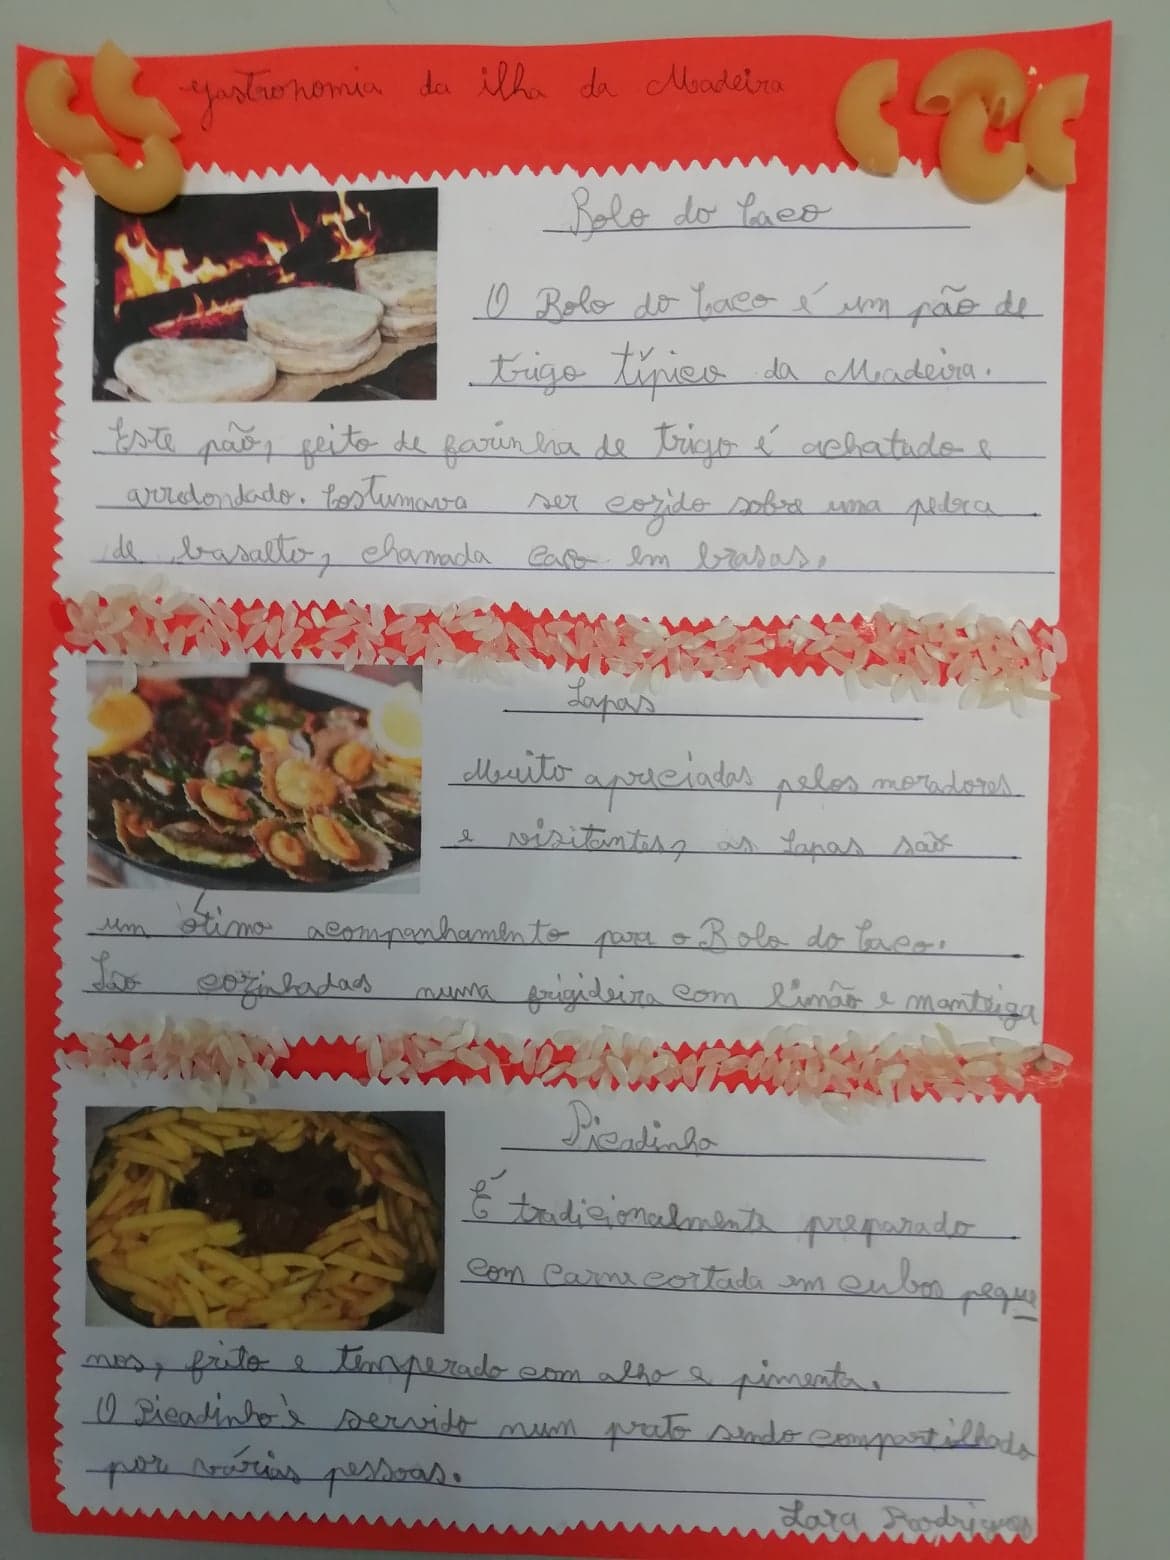 gastronomia da ilha da Madeira
Bolo do Caco
O Bolo do Caco é um pão de
trigo típico da Madeira.
Este pão, feito de farinha de trigo é achatado e
arredondado. Costumava ser cozido sobre uma pedra
de basalto, chamada caco em brasas.
Lapas
Muito apreciadas pelos moradores
e visitantes, as Lapas são
um ótimo acompanhamento para o Bolo do Caco.
São cozinhadas numa frigideira com limão e manteiga
Picadinho
É tradicionalmente preparado
com carne cortada em cubos peque
nos, frito e temperado com alho e pimenta.
O Picadinho é servido num prato sendo compartilhado
por várias pessoas.
Lara Rodrigues